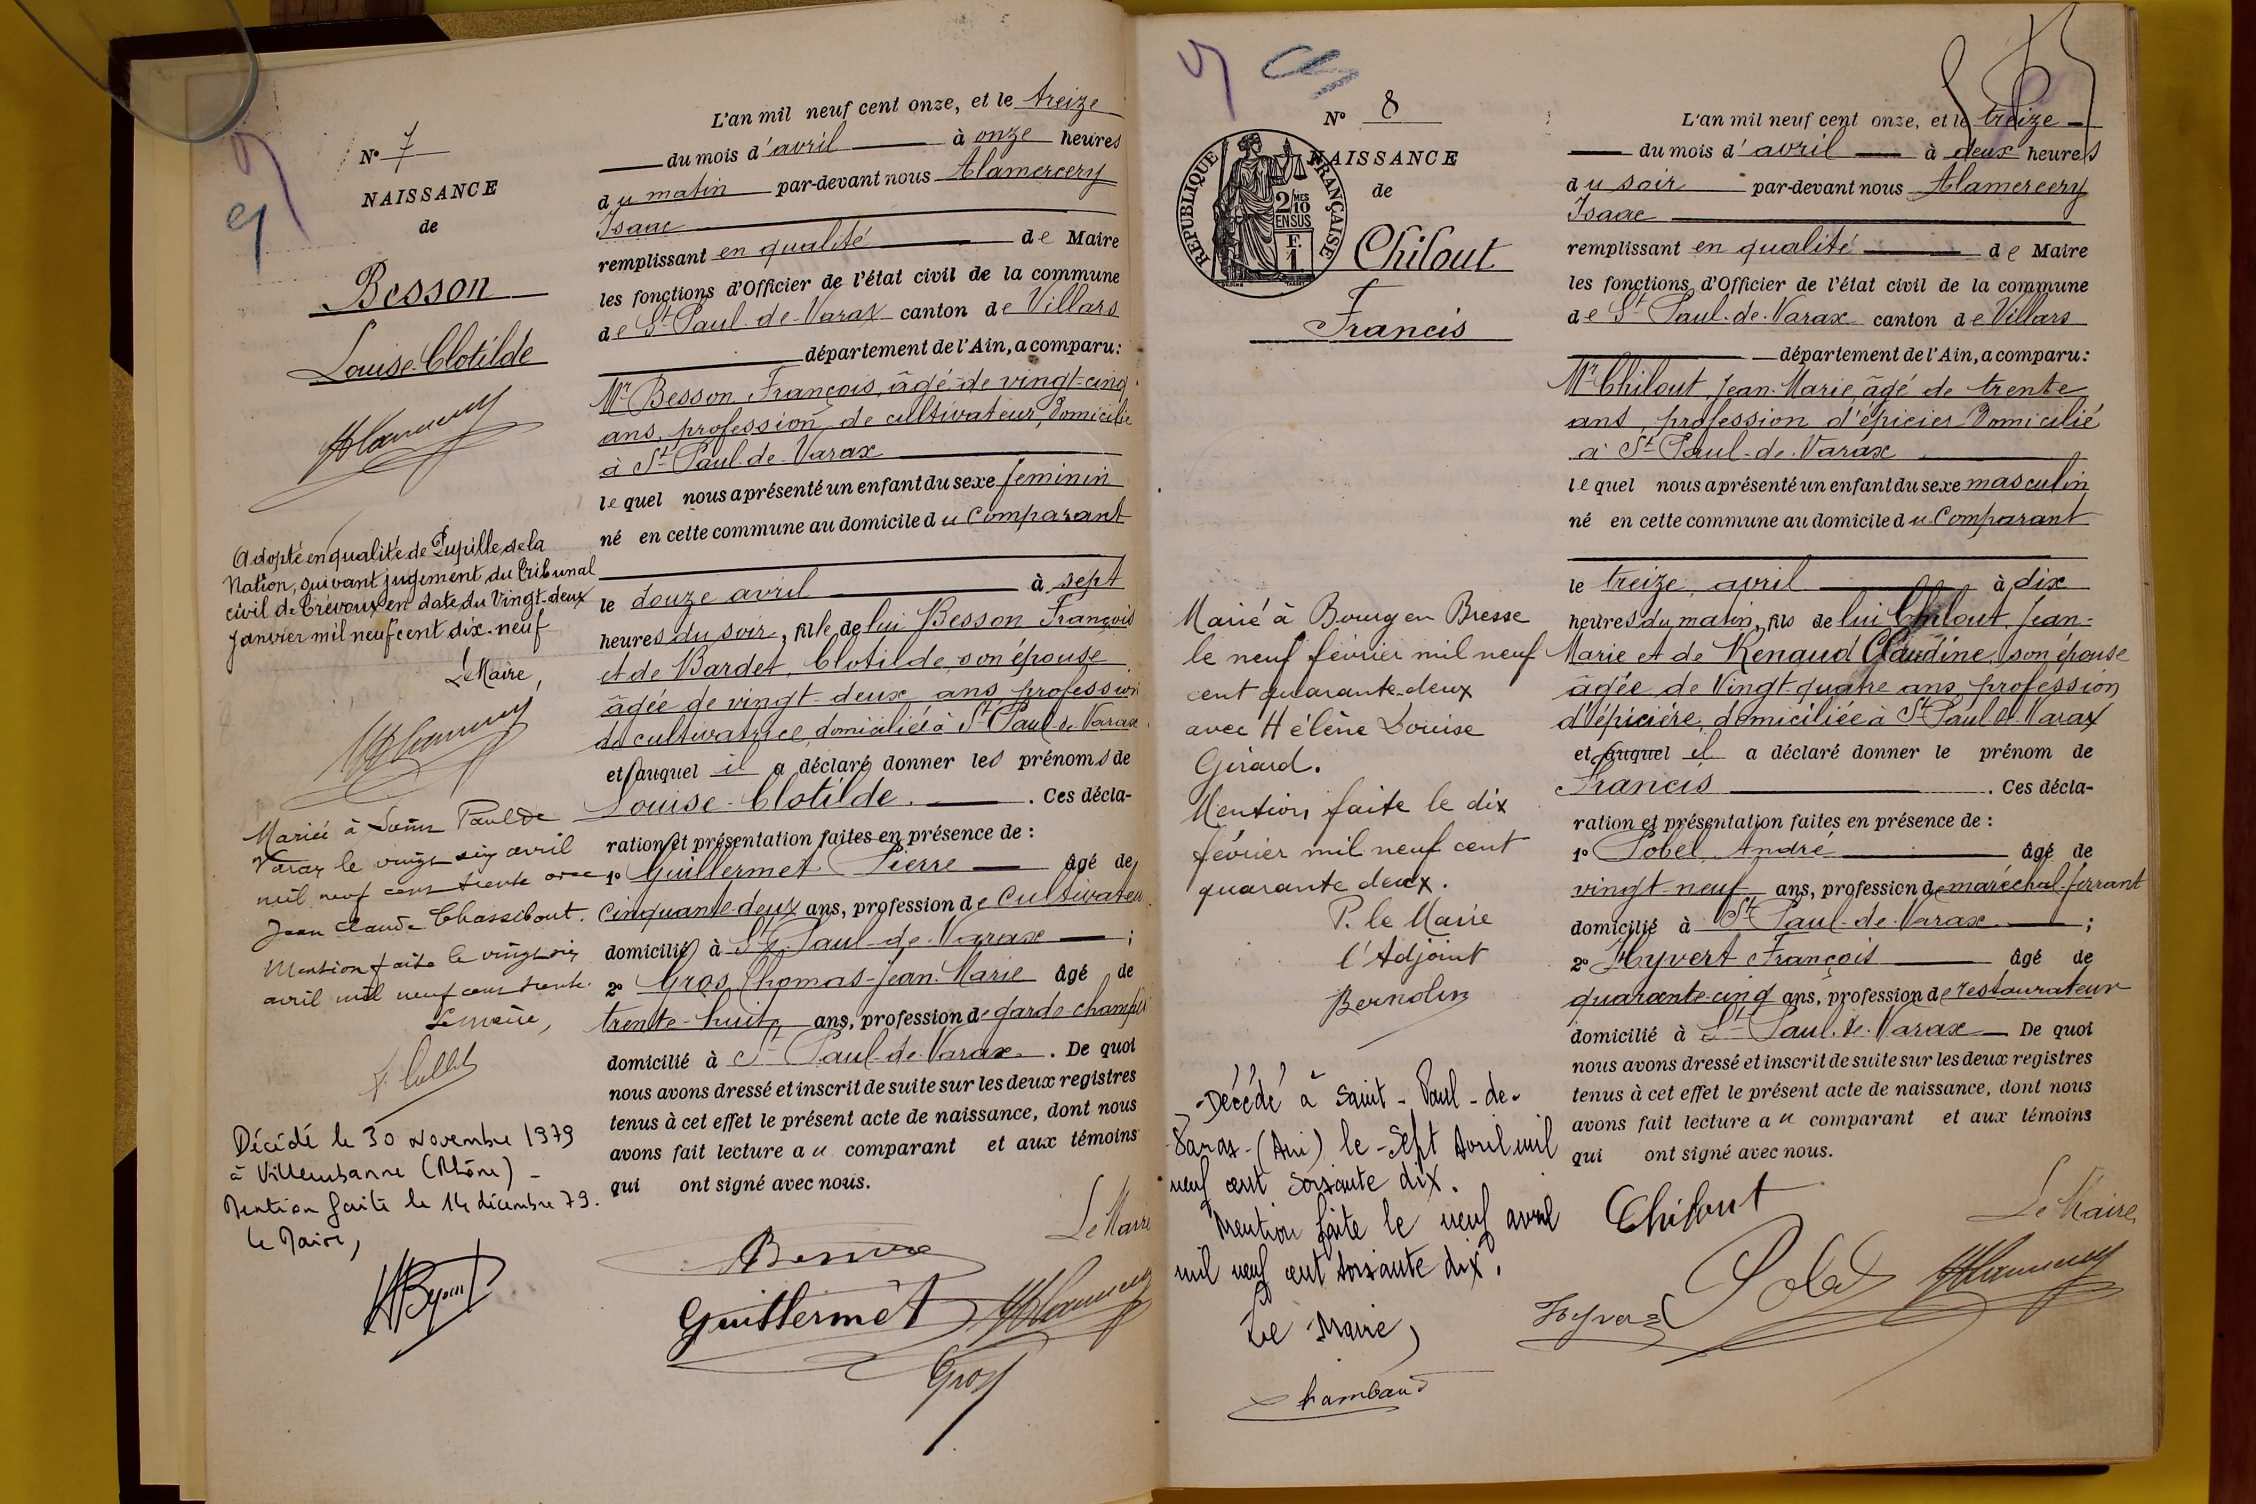 N° 7
NAISSANCE
de
Besson
Louise-Clotilde
Adopté en qualité de Pupille de la
Nation, suivant jugement du tribunal
civil de Trévoux en date du Vingt-deux
janvier mil neuf cent dix-neuf
Le Maire,
Mariée à Saint Paul de
Varax le vingt six avril
mil neuf cent trente avec
Jean Claude Chassibout.
Mention faite le vingt six
avril mil neuf cent trente.
Le maire,
Décédé le 30 Novembre 1979
à Villeurbanne (Rhône) -
Mention faite le 14 décembre 79.
Le Maire,
L'an mil neuf cent onze, et le treize
du mois d'avril à onze heures
du matin par-devant nous Alamercery
Isaac
remplissant en qualité de Maire
les fonctions d'Officier de l'état civil de la commune
de St Paul-de-Varax canton de Villars
département de l'Ain, a comparu:
Mr Besson François, âgé de vingt-cinq
ans, profession de cultivateur, domicilié
à St Paul-de-Varax
lequel nous a présenté un enfant du sexe féminin
né en cette commune au domicile du Comparant
le douze avril à sept
heures du soir, fille de lui Besson François
et de Bardet, Clotilde son épouse
âgée de vingt-deux ans profession
de cultivatrice, domiciliée à St Paul-de-Varax
et auquel il a déclaré donner les prénoms de
Louise-Clotilde. . Ces décla-
ration et présentation faites en présence de :
1° Guillermet Pierre âgé de
Cinquante-deux ans, profession de Cultivateur
domicilié à St Paul-de-Varax ;
2° Gros Thomas-Jean-Marie âgé de
trente-huit ans, profession de garde-champêt
domicilié à St Paul-de-Varax. . De quoi
nous avons dressé et inscrit de suite sur les deux registres
tenus à cet effet le présent acte de naissance, dont nous
avons fait lecture au comparant et aux témoins
qui ont signé avec nous.
Le Maire
Besson
Guillermet
Gros
N° 8
NAISSANCE
de
RÉPUBLIQUE FRANÇAISE
2/10 MES
EN SUS
F.
1
Chilout
Francis
Marié à Bourg en Bresse
le neuf février mil neuf
cent quarante-deux
avec Hélène Louise
Girard.
Mention faite le dix
février mil neuf cent
quarante deux.
P. le Maire
l'Adjoint
Décédé à Saint-Paul-de-
Varax-(Ain) le-Sept Avril mil
neuf cent soixante dix.
Mention faite le neuf avril
mil neuf cent soixante dix.
Le Maire,
Chambaud
L'an mil neuf cent onze, et le treize
du mois d'avril à deux heures
du soir par-devant nous Alamercery
Isaac
remplissant en qualité de Maire
les fonctions d'Officier de l'état civil de la commune
de St Paul-de-Varax canton de Villars
département de l'Ain, a comparu:
Mr Chilout, Jean-Marie, âgé de trente
ans, profession d'épicier domicilié
à St Paul-de-Varax
lequel nous a présenté un enfant du sexe masculin
né en cette commune au domicile du Comparant
le treize avril à dix
heures du matin, fils de lui Chilout, Jean-
Marie et de Renaud Claudine, son épouse
âgée de Vingt-quatre ans, profession
d'épicière, domiciliée à St Paul de Varax
et auquel il a déclaré donner le prénom de
Francis . Ces décla-
ration et présentation faites en présence de :
1° Pobel, André âgé de
vingt-neuf ans, profession de maréchal-ferrant
domicilié à St Paul-de-Varax ;
2° Hyvert François âgé de
quarante-cinq ans, profession de restaurateur
domicilié à St Paul-de-Varax De quoi
nous avons dressé et inscrit de suite sur les deux registres
tenus à cet effet le présent acte de naissance, dont nous
avons fait lecture au comparant et aux témoins
qui ont signé avec nous.
Le Maire,
Chilout
Pobel
Hyvert